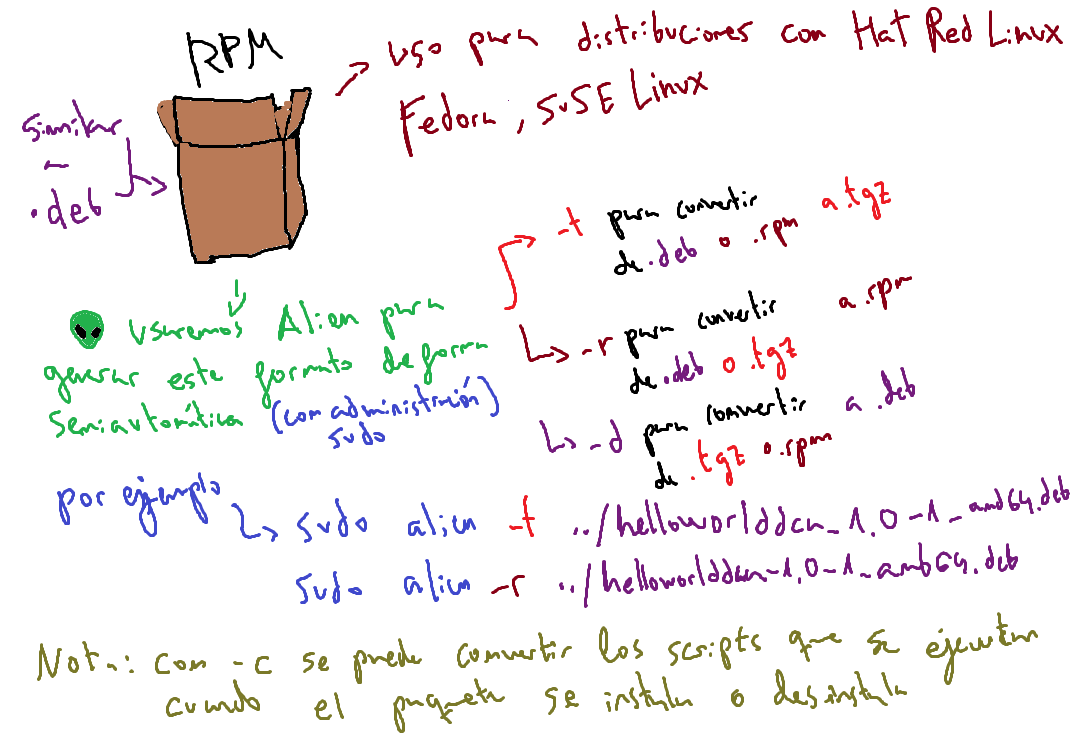 RPM
uso para distribuciones con Hat Red Linux
Fedora, SuSE Linux
similar
a
.deb
-t para convertir a .tgz
de .deb o .rpm
usaremos Alien para
generar este formato de forma
semiautomática (con administración)
sudo
-r para convertir a .rpm
de .deb o .tgz
-d para convertir a .deb
de .tgz o .rpm
por ejemplo
sudo alien -t ../helloworlddcn_1.0-1_amd64.deb
sudo alien -r ../helloworlddcn-1.0-1_amb64.deb
Nota: com -c se puede convertir los scripts que se ejecutan
cuando el paquete se instala o desinstala